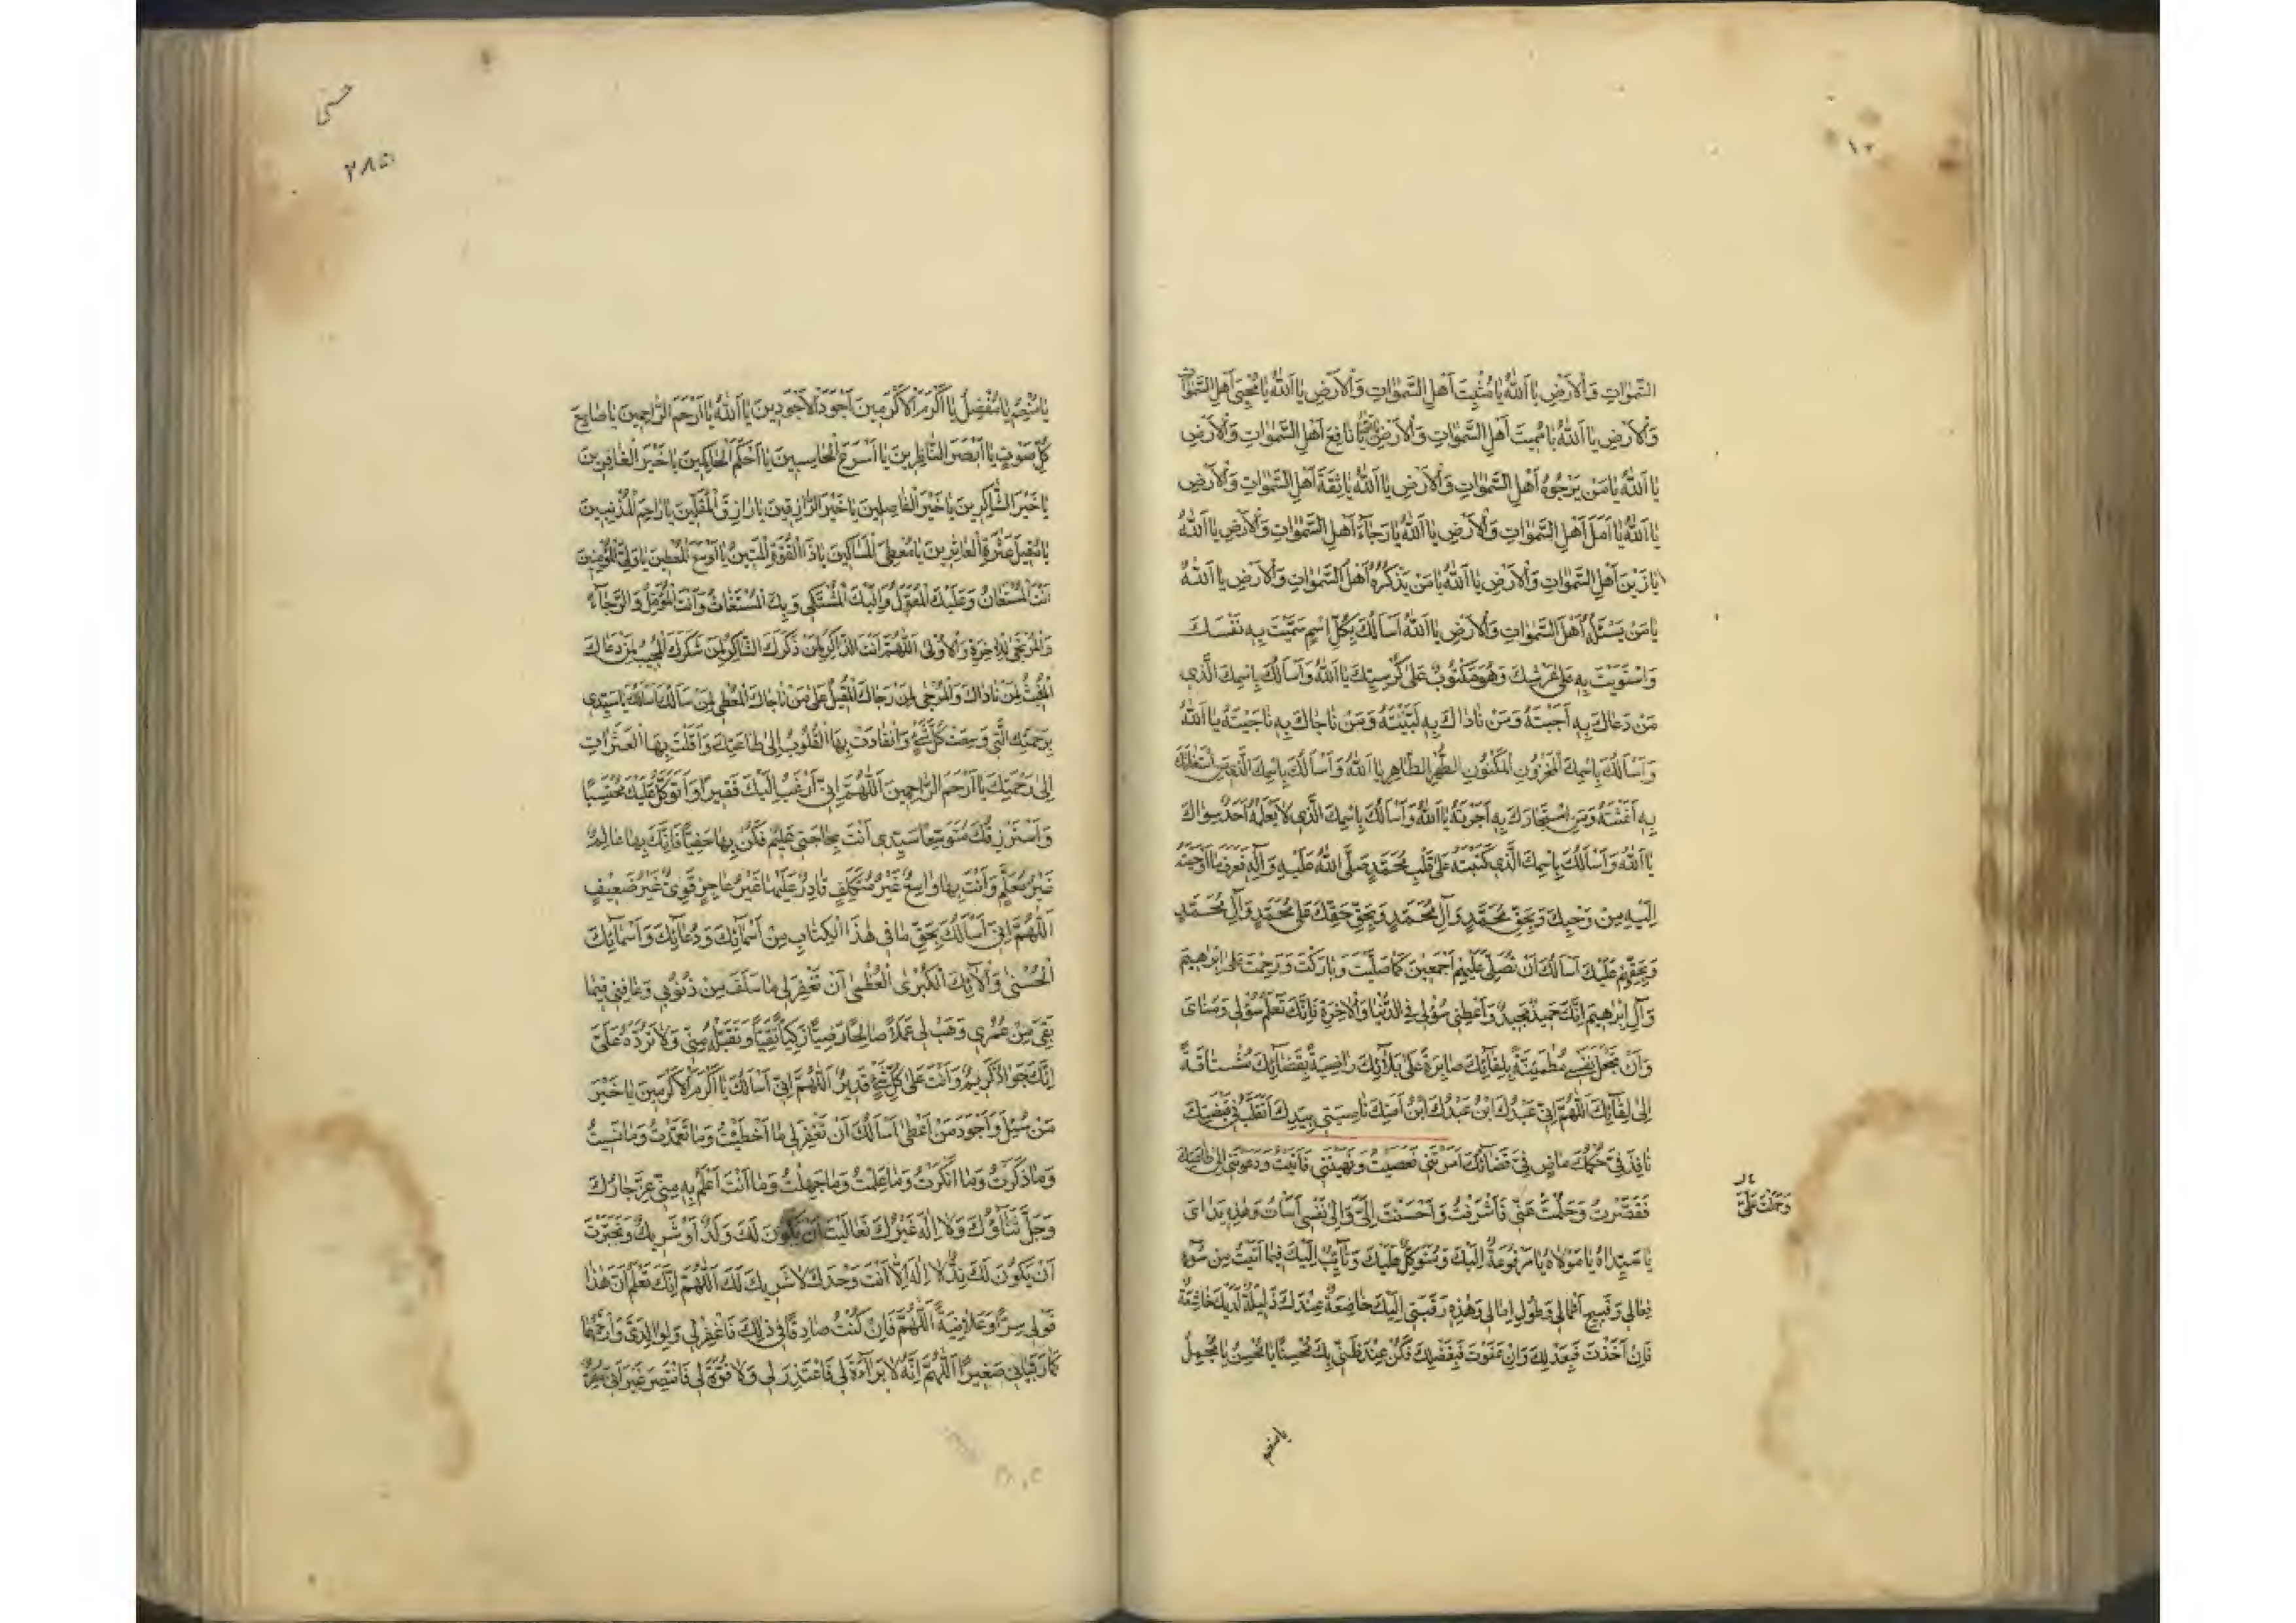 السَّمٰوَاتِ وَالْأَرْضِ يَا اَللّٰهُ يَا مُثْبِتَ أَهْلِ السَّمٰوَاتِ وَالْأَرْضِ يَا اَللّٰهُ يَا مُحْيِيَ أَهْلِ السَّمٰوَاتِ
وَالْأَرْضِ يَا اَللّٰهُ يَا مُمِيتَ أَهْلِ السَّمٰوَاتِ وَالْأَرْضِ يَا نَافِعَ أَهْلِ السَّمٰوَاتِ وَالْأَرْضِ
يَا اَللّٰهُ يَا مَنْ يَرْجُوهُ أَهْلُ السَّمٰوَاتِ وَالْأَرْضِ يَا اَللّٰهُ يَا ثِقَةَ أَهْلِ السَّمٰوَاتِ وَالْأَرْضِ
يَا اَللّٰهُ يَا أَمَلَ أَهْلِ السَّمٰوَاتِ وَالْأَرْضِ يَا اَللّٰهُ يَا رَجَاءَ أَهْلِ السَّمٰوَاتِ وَالْأَرْضِ يَا اَللّٰهُ
يَا زَيْنَ أَهْلِ السَّمٰوَاتِ وَالْأَرْضِ يَا اَللّٰهُ يَا مَنْ يَذْكُرُهُ أَهْلُ السَّمٰوَاتِ وَالْأَرْضِ يَا اَللّٰهُ
يَا مَنْ يَسْئَلُهُ أَهْلُ السَّمٰوَاتِ وَالْأَرْضِ يَا اَللّٰهُ أَسْأَلُكَ بِكُلِّ اسْمٍ سَمَّيْتَ بِهِ نَفْسَكَ
وَاسْتَوَيْتَ بِهِ عَلَى عَرْشِكَ وَهُوَ مَكْتُوبٌ عَلَى كُرْسِيِّكَ يَا اَللّٰهُ وَأَسْأَلُكَ بِاسْمِكَ الَّذِي
مَنْ دَعَاكَ بِهِ أَجَبْتَهُ وَمَنْ نَادَاكَ بِهِ لَبَّيْتَهُ وَمَنْ نَاجَاكَ بِهِ نَاجَيْتَهُ يَا اَللّٰهُ
وَأَسْأَلُكَ بِاسْمِكَ الْمَخْزُونِ الْمَكْنُونِ الطُّهْرِ الطَّاهِرِ يَا اَللّٰهُ وَأَسْأَلُكَ بِاسْمِكَ الَّذِي مَنِ اسْتَغَاثَكَ
بِهِ أَغَثْتَهُ وَمَنِ اسْتَجَارَكَ بِهِ أَجَرْتَهُ يَا اَللّٰهُ وَأَسْأَلُكَ بِاسْمِكَ الَّذِي لَا يَعْلَمُهُ أَحَدٌ سِوَاكَ
يَا اَللّٰهُ وَأَسْأَلُكَ بِاسْمِكَ الَّذِي كَتَبْتَهُ عَلَى قَلْبِ مُحَمَّدٍ صَلَّى اللّٰهُ عَلَيْهِ وَآلِهِ فَعَرَفَ مَا أَوْحَيْتَهُ
إِلَيْهِ مِنْ وَحْيِكَ وَبِحَقِّ مُحَمَّدٍ وَآلِ مُحَمَّدٍ وَبِحَقِّ حَقِّكَ عَلَى مُحَمَّدٍ وَآلِ مُحَمَّدٍ
وَبِحَقِّهِمْ عَلَيْكَ أَسْأَلُكَ أَنْ تُصَلِّيَ عَلَيْهِمْ أَجْمَعِينَ كَمَا صَلَّيْتَ وَبَارَكْتَ وَرَحِمْتَ عَلَى إِبْرٰهِيمَ
وَآلِ إِبْرٰهِيمَ إِنَّكَ حَمِيدٌ مَجِيدٌ وَأَعْطِنِي سُؤْلِي فِي الدُّنْيَا وَالْآخِرَةِ فَإِنَّكَ تَعْلَمُ سُؤْلِي وَمُنَايَ
وَأَنْ تَجْعَلَ نَفْسِي مُطْمَئِنَّةً بِلِقَائِكَ صَابِرَةً عَلَى بَلَائِكَ رَاضِيَةً بِقَضَائِكَ مُشْتَاقَةً
إِلَى لِقَائِكَ اللّٰهُمَّ إِنِّي عَبْدُكَ ابْنُ عَبْدِكَ ابْنُ أَمَتِكَ نَاصِيَتِي بِيَدِكَ أَتَقَلَّبُ فِي قَبْضَتِكَ
نَافِذٌ فِيَّ حُكْمُكَ مَاضٍ فِيَّ قَضَائُكَ أَمَرْتَنِي فَعَصَيْتُ وَنَهَيْتَنِي فَأَتَيْتُ وَدَعَوْتَنِي إِلَى طَاعَتِكَ
فَقَصَّرْتُ وَحَلُمْتَ عَنِّي فَأَسْرَفْتُ وَأَحْسَنْتَ إِلَيَّ وَإِلَى نَفْسِي أَسَأْتُ وَهٰذِهِ يَدَايَ
وَحَلُمْتَ عَلَيَّ
يَا سَيِّدَاهُ يَا مَوْلَاهُ يَا مَرْفُوعَةٌ إِلَيْكَ وَمُتَوَكِّلٌ عَلَيْكَ وَتَائِبٌ إِلَيْكَ فِيمَا أَتَيْتُ مِنْ سُوءِ
فِعَالِي وَقَبِيحِ أَعْمَالِي وَطُولِ آمَالِي وَهٰذِهِ رَقَبَتِي إِلَيْكَ خَاضِعَةٌ عِنْدَكَ ذَلِيلَةٌ لَدَيْكَ خَاشِعَةٌ
فَإِنْ أَخَذْتَ فَبِعَدْلِكَ وَإِنْ عَفَوْتَ فَبِفَضْلِكَ فَكُنْ عِنْدَ ظَنِّي بِكَ مُحْسِنًا يَا مُحْسِنُ يَا مُجْمِلُ
يا منعم
٣٨٥
يَا مُنْعِمُ يَا مُفْضِلُ يَا أَكْرَمَ الْأَكْرَمِينَ أَجْوَدَ الْأَجْوَدِينَ يَا اَللّٰهُ يَا أَرْحَمَ الرَّاحِمِينَ يَا صَانِعَ
كُلِّ صَوْتٍ يَا أَبْصَرَ النَّاظِرِينَ يَا أَسْرَعَ الْحَاسِبِينَ يَا أَحْكَمَ الْحَاكِمِينَ يَا خَيْرَ الْغَافِرِينَ
يَا خَيْرَ الشَّاكِرِينَ يَا خَيْرَ الْفَاصِلِينَ يَا خَيْرَ الرَّازِقِينَ يَا رَازِقَ الْمُقِلِّينَ يَا رَاحِمَ الْمُذْنِبِينَ
يَا مُقِيلَ عَثْرَةِ الْعَاثِرِينَ يَا مُعْطِيَ الْمَسَاكِينِ يَا ذَا الْقُوَّةِ الْمَتِينُ يَا أَوْسَعَ الْمُعْطِينَ يَا وَلِيَّ الْمُؤْمِنِينَ
أَنْتَ الْمُسْتَعَانُ وَعَلَيْكَ الْمُعَوَّلُ وَإِلَيْكَ الْمُشْتَكٰى وَبِكَ الْمُسْتَغَاثُ وَأَنْتَ الْمُؤَمَّلُ وَالرَّجَاءُ
وَالْمُرْتَجٰى لِلْآخِرَةِ وَالْأُولٰى اللّٰهُمَّ أَنْتَ الذَّاكِرُ لِمَنْ ذَكَرَكَ الشَّاكِرُ لِمَنْ شَكَرَكَ الْمُجِيبُ لِمَنْ دَعَاكَ
الْمُغِيثُ لِمَنْ نَادَاكَ وَالْمُرْجٰى لِمَنْ رَجَاكَ الْمُقْبِلُ عَلٰى مَنْ نَاجَاكَ الْمُعْطِي لِمَنْ سَأَلَكَ أَسْأَلُكَ يَا سَيِّدِي
بِرَحْمَتِكَ الَّتِي وَسِعَتْ كُلَّ شَيْءٍ وَانْقَادَتْ بِهَا الْقُلُوبُ إِلٰى طَاعَتِكَ وَأَقَلْتَ بِهَا الْعَثَرَاتِ
إِلٰى رَحْمَتِكَ يَا أَرْحَمَ الرَّاحِمِينَ اللّٰهُمَّ إِنِّي أَرْغَبُ إِلَيْكَ فَقِيرًا وَأَتَوَكَّلُ عَلَيْكَ مُحْتَسِبًا
وَأَسْتَرْزِقُكَ مُتَوَسِّعًا سَيِّدِي أَنْتَ بِحَاجَتِي عَلِيمٌ فَكُنْ بِهَا حَفِيًّا فَإِنَّكَ بِهَا عَالِمٌ
غَيْرُ مُعَلَّمٍ وَأَنْتَ بِهَا وَاسِعٌ غَيْرُ مُتَكَلِّفٍ قَادِرٌ عَلَيْهَا غَيْرُ عَاجِزٍ قَوِيٌّ غَيْرُ ضَعِيفٍ
اللّٰهُمَّ إِنِّي أَسْأَلُكَ بِحَقِّ مَا فِي هٰذَا الْكِتَابِ مِنْ أَسْمَائِكَ وَدُعَائِكَ وَأَسْمَائِكَ
الْحُسْنٰى وَآلَائِكَ الْكُبْرٰى الْعُظْمٰى أَنْ تَغْفِرَ لِي مَا سَلَفَ مِنْ ذُنُوبِي وَعَافِنِي فِيمَا
بَقِيَ مِنْ عُمْرِي وَهَبْ لِي عَمَلًا صَالِحًا رَضِيًّا زَكِيًّا تَقِيًّا وَتَقَبَّلْهُ مِنِّي وَلَا تَرُدَّهُ عَلَيَّ
إِنَّكَ جَوَادٌ كَرِيمٌ وَأَنْتَ عَلٰى كُلِّ شَيْءٍ قَدِيرٌ اللّٰهُمَّ إِنِّي أَسْأَلُكَ يَا أَكْرَمَ الْأَكْرَمِينَ يَا خَيْرَ
مَنْ سُئِلَ وَأَجْوَدَ مَنْ أَعْطٰى أَسْأَلُكَ أَنْ تَغْفِرَ لِي مَا أَخْطَيْتُ وَمَا تَعَمَّدْتُ وَمَا نَسِيتُ
وَمَا ذَكَرْتُ وَمَا أَنْكَرْتُ وَمَا عَلِمْتُ وَمَا جَهِلْتُ وَمَا أَنْتَ أَعْلَمُ بِهِ مِنِّي عَزَّ جَارُكَ
وَجَلَّ ثَنَاؤُكَ وَلَا إِلٰهَ غَيْرُكَ تَعَالَيْتَ أَنْ يَكُونَ لَكَ وَلَدٌ أَوْ شَرِيكٌ وَتَجَبَّرْتَ
أَنْ يَكُونَ لَكَ نِدٌّ لَا إِلٰهَ إِلَّا أَنْتَ وَحْدَكَ لَا شَرِيكَ لَكَ اللّٰهُمَّ إِنَّكَ تَعْلَمُ أَنَّ هٰذَا
قَوْلِي سِرًّا وَعَلَانِيَةً اللّٰهُمَّ فَإِنْ كُنْتُ صَادِقًا فِي ذٰلِكَ فَاغْفِرْ لِي وَلِوَالِدَيَّ وَارْحَمْهُمَا
كَمَا رَبَّيَانِي صَغِيرًا اللّٰهُمَّ إِنَّهُ لَا بَرَاءَةَ لِي فَأَعْتَذِرَ لِي وَلَا قُوَّةَ لِي فَأَنْتَصِرَ غَيْرَ أَنِّي